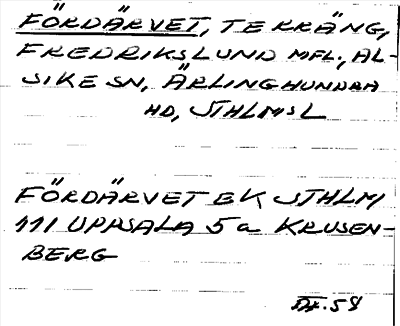 FÖRDÄRVET, TERRÄNG,
FREDRIKSLUND MFL., AL-
SIKE SN, ÄRLINGHUNDRA
HD, STHLMSL
FÖRDÄRVET EK STHLM
111 UPPSALA 5a KRUSEN-
BERG
IX.58